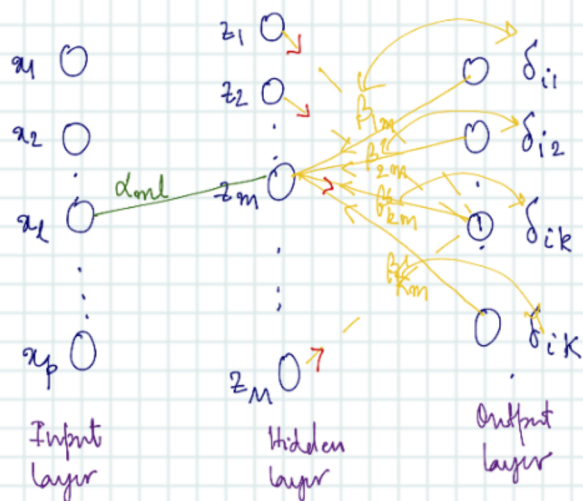 x1
x2
xl
xp
αml
z1
z2
zm
zM
β1m
β2m
βkm
βKm
δi1
δi2
δik
δiK
Input
layer
Hidden
layer
Output
layer